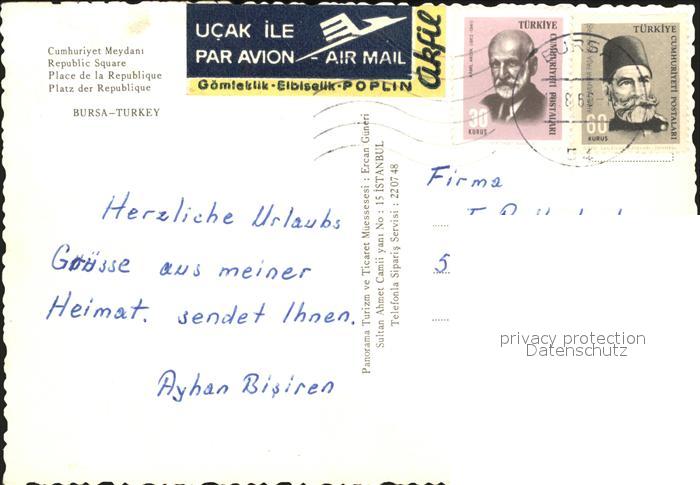 Cumhuriyet Meydanı
Republic Square
Place de la Republique
Platz der Republique
BURSA–TURKEY
UÇAK İLE
PAR AVION - AIR MAIL
Gömleklik-Elbiselik-POPLIN
akfil
TÜRKİYE
CUMHURİYETİ POSTALARI
30
KURUŞ
TÜRKİYE
CUMHURİYETİ POSTALARI
60
KURUŞ
BURSA
Herzliche Urlaubs
Grüsse aus meiner
Heimat. sendet Ihnen.
Ayhan Bişiren
Panorama Turizm ve Ticaret Muessesesi : Ercan Güneri
Sultan Ahmet Camii yanı No : 15 İSTANBUL
Telefonla Sipariş Servisi : 220748
Firma
5
privacy protection
Datenschutz